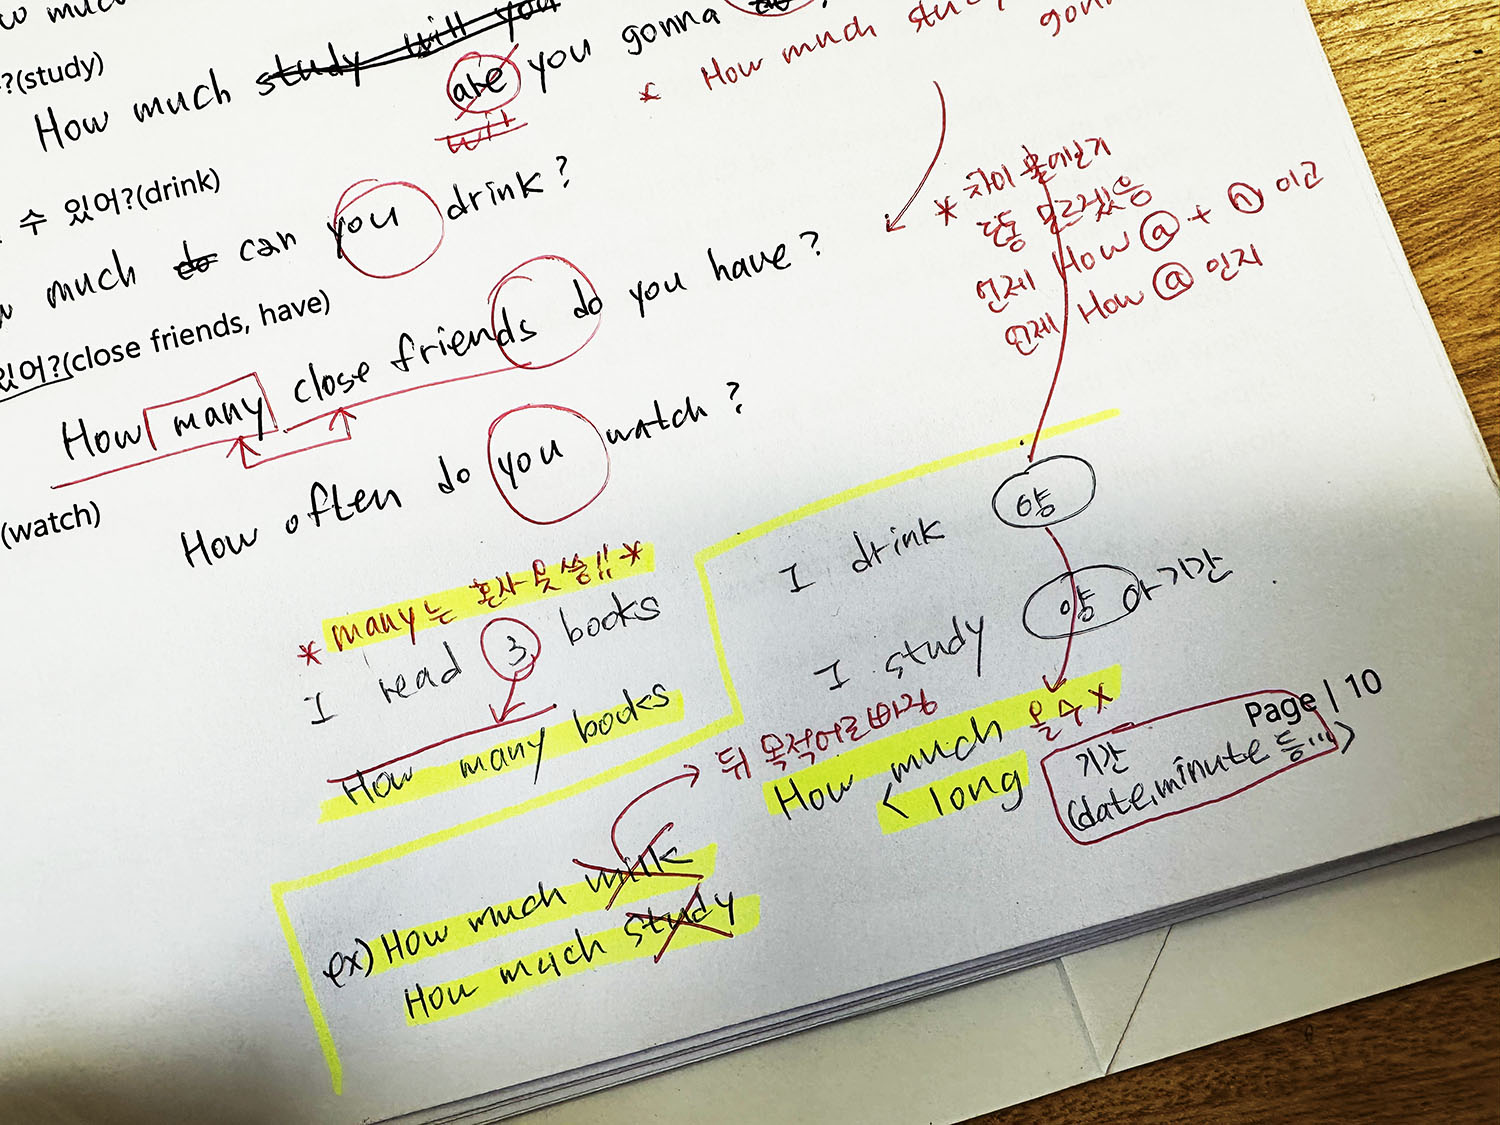 ?(study)
How much study will you are you gonna
will
* How much study
gonna
수 있어?(drink)
much do can you drink?
* 차이 물어보기
모르겠음
언제 How ⓐ + ⓝ 이고
언제 How ⓐ 인지
있어?(close friends, have)
How many close friends do you have?
(watch)
How often do you watch?
* many는 혼자 못 씀!! *
I read 3 books
How many books
I drink 양
I study 양 아 기간
뒤 목적어로 빠짐
How much 올 수 X
< long
기간
(date, minute 등...)
Page | 10
ex) How much milk
How much study